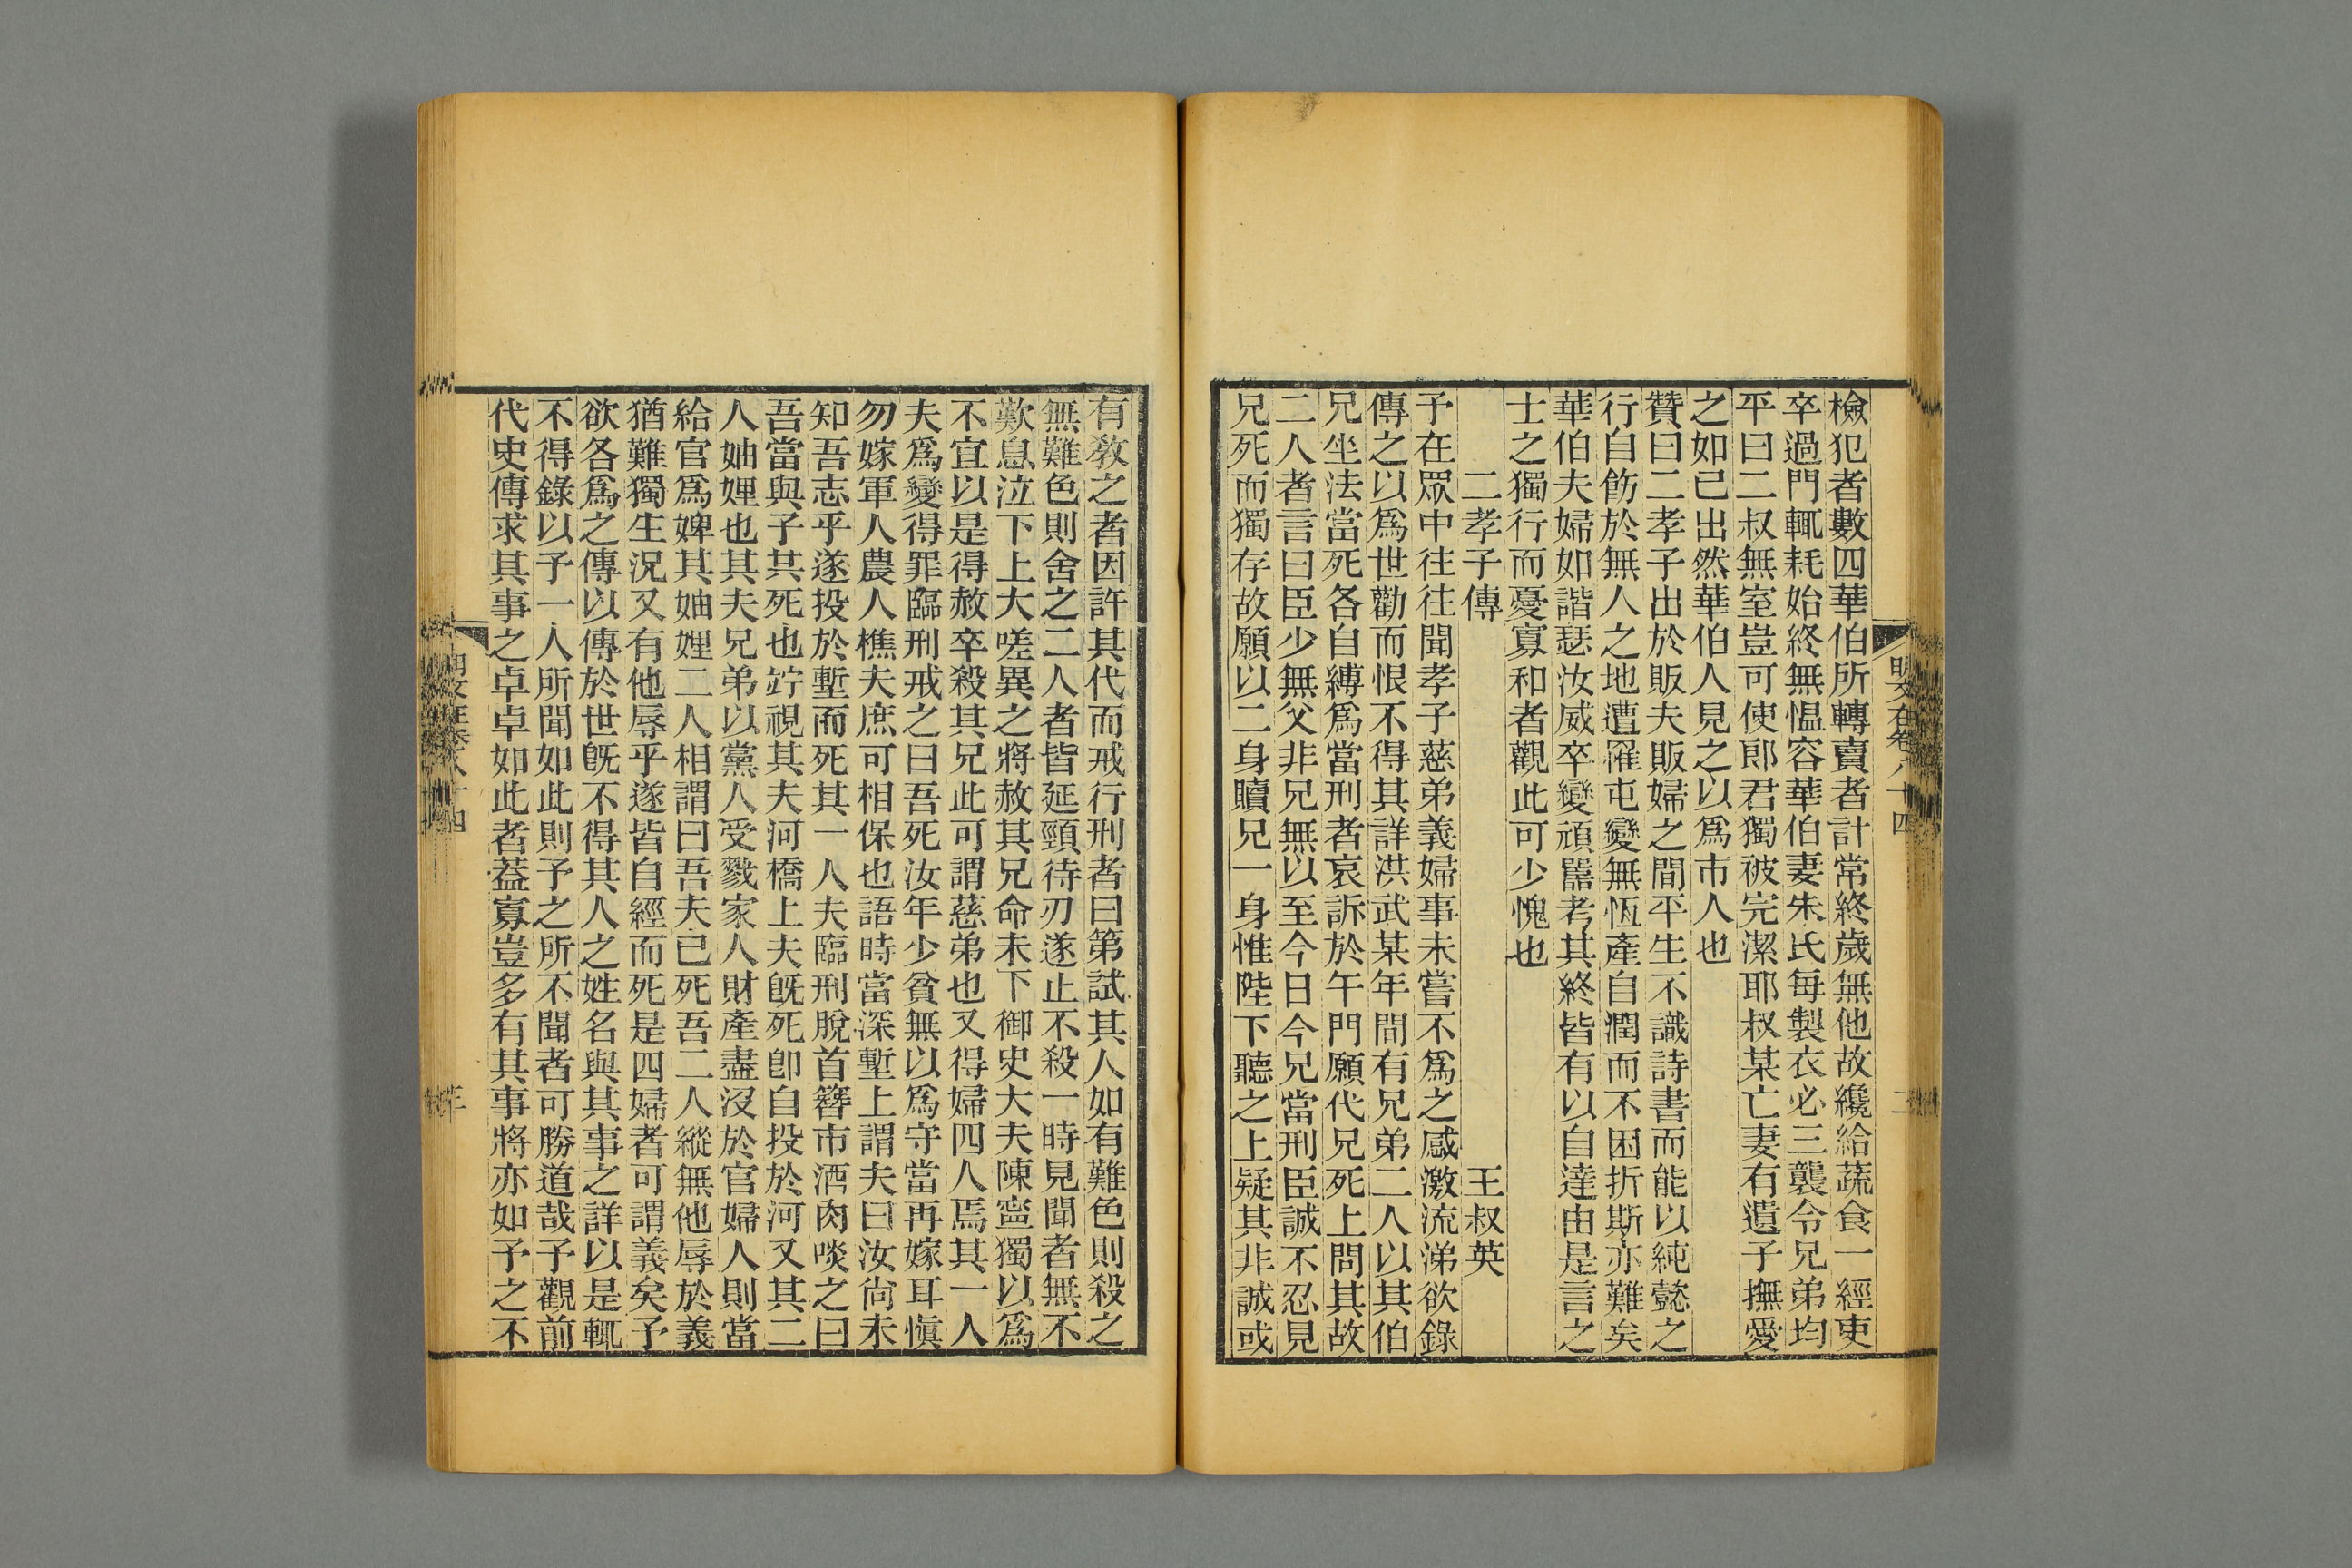 明文在卷八十四
二
檢犯者數四華伯所轉賣者計常終歲無他故纔給蔬食一經吏
卒過門輒耗始終無慍容華伯妻朱氏每製衣必三襲令兄弟均
平曰二叔無室豈可使郎君獨被完潔耶叔某亡妻有遺子撫愛
之如己出然華伯人見之以爲市人也
贊曰二孝子出於販夫販婦之間平生不識詩書而能以純懿之
行自飭於無人之地遭罹屯變無恆產自潤而不困折斯亦難矣
華伯夫婦如諧瑟汝威卒變頑嚚考其終皆有以自達由是言之
士之獨行而憂寡和者觀此可少愧也
二孝子傳 王叔英
予在眾中往往聞孝子慈弟義婦事未嘗不爲之感激流涕欲錄
傳之以爲世勸而恨不得其詳洪武某年間有兄弟二人以其伯
兄坐法當死各自縛爲當刑者哀訴於午門願代兄死上問其故
二人者言曰臣少無父非兄無以至今日今兄當刑臣誠不忍見
兄死而獨存故願以二身贖兄一身惟陛下聽之上疑其非誠或
有教之者因許其代而戒行刑者曰第試其人如有難色則殺之
無難色則舍之二人者皆延頸待刃遂止不殺一時見聞者無不
歎息泣下上大嗟異之將赦其兄命未下御史大夫陳寧獨以爲
不宜以是得赦卒殺其兄此可謂慈弟也又得婦四人焉其一人
夫爲變得罪臨刑戒之曰吾死汝年少貧無以爲守當再嫁耳愼
勿嫁軍人農人樵夫庶可相保也語時當深塹上謂夫曰汝尙未
知吾志乎遂投於塹而死其一人夫臨刑脫首簪市酒肉啖之曰
吾當與子共死也竚視其夫河橋上夫旣死卽自投於河又其二
人妯娌也其夫兄弟以黨人受戮家人財產盡沒於官婦人則當
給官爲婢其妯娌二人相謂曰吾夫已死吾二人縱無他辱於義
猶難獨生況又有他辱乎遂皆自經而死是四婦者可謂義矣予
欲各爲之傳以傳於世旣不得其人之姓名與其事之詳以是輒
不得錄以予一人所聞如此則予之所不聞者可勝道哉予觀前
代史傳求其事之卓卓如此者蓋寡豈多有其事將亦如予之不
明文在卷八十四
三